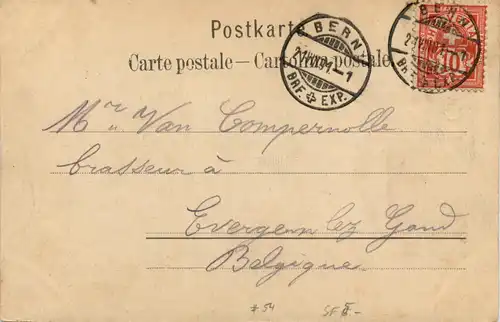 Postkarte.
Carte postale — Cartolina postale.
BERN
BRF. EXP.
BERN
BRF. EXP.
10
Mr. Van Compernolle
brasseur à
Evergem lez Gand
Belgique
#54